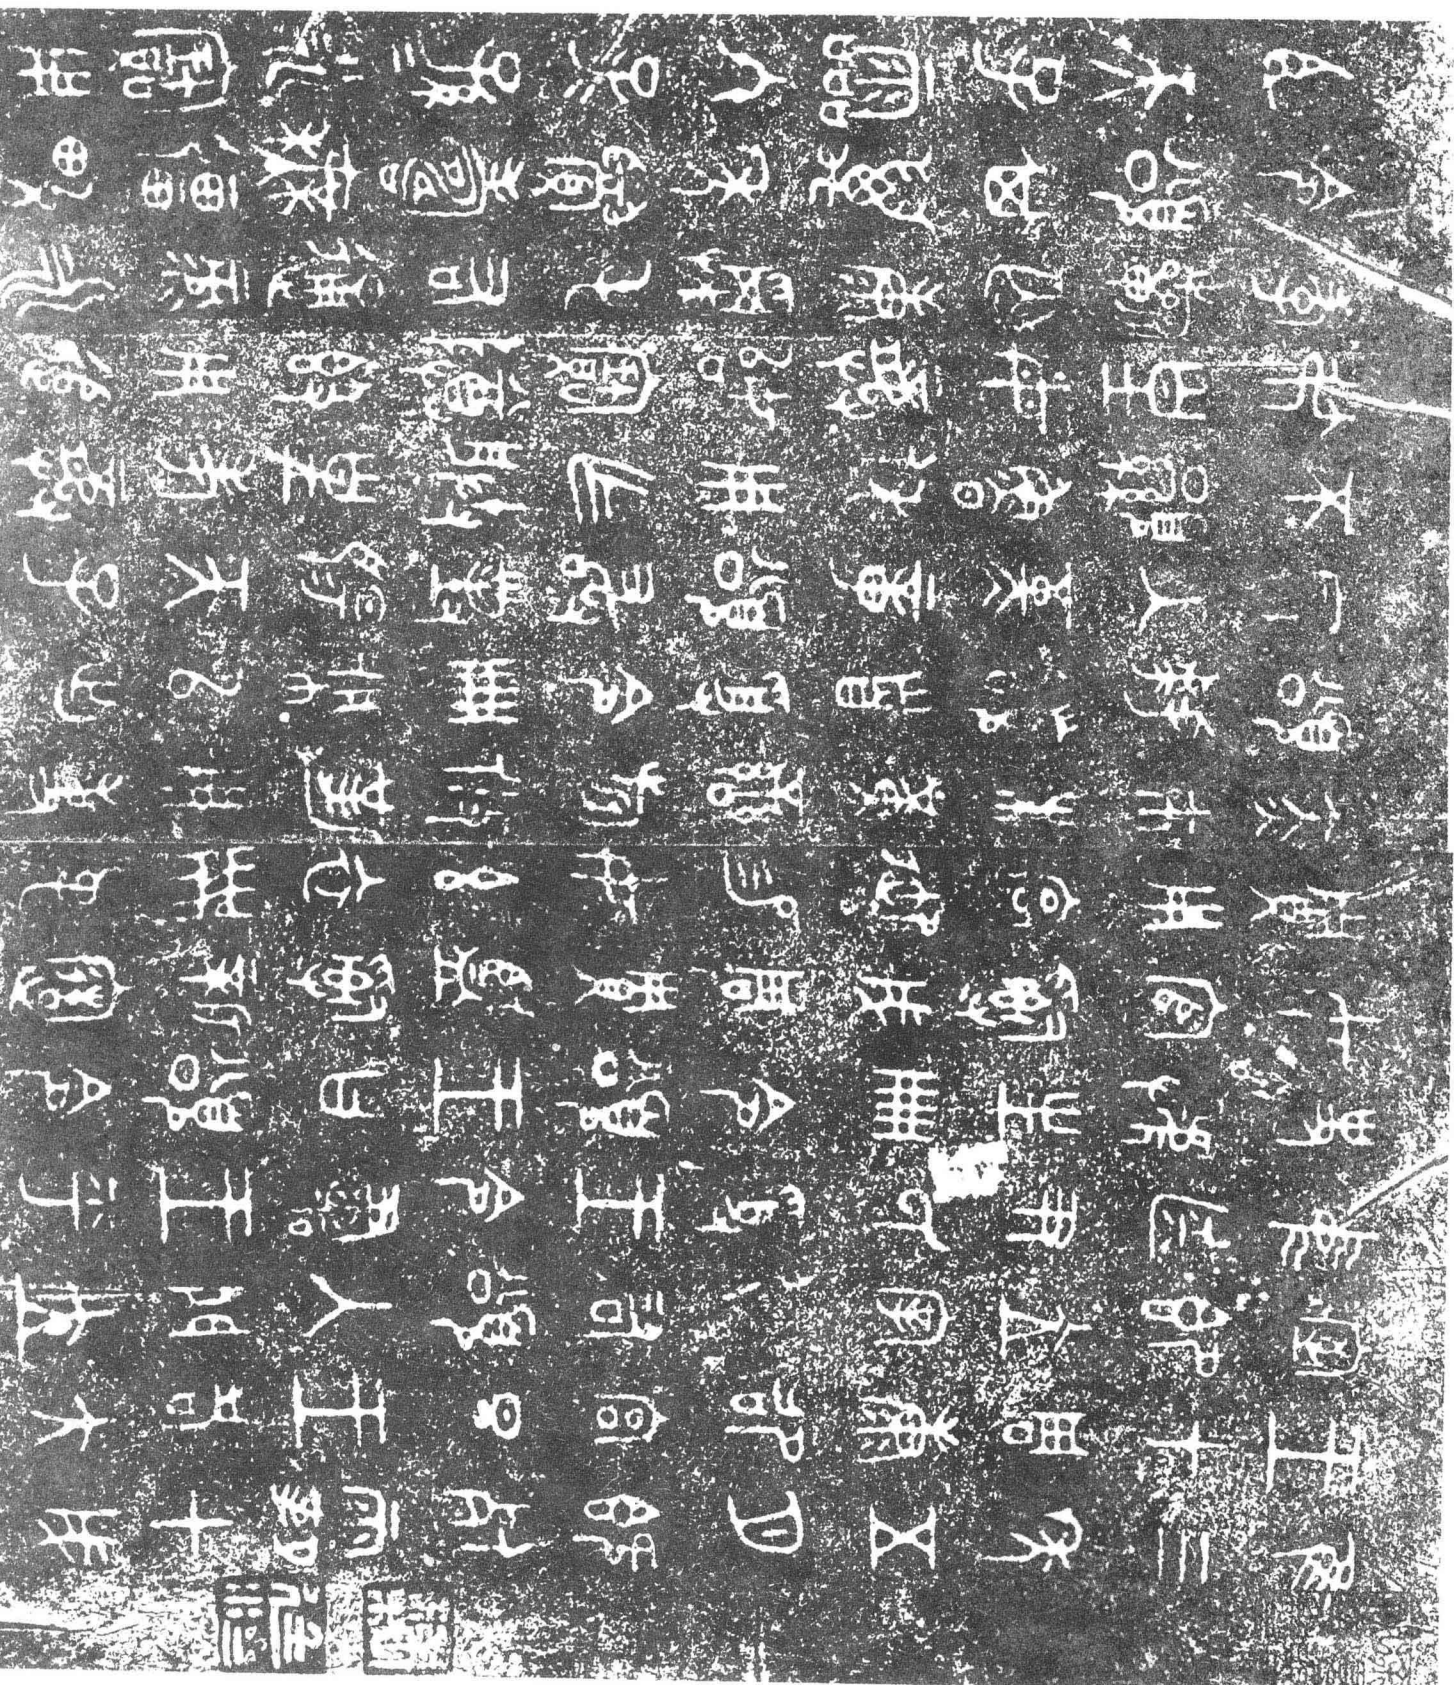 隹三年五月既死霸甲戌
王才周康卲宮旦王各大
室即立宰弘右頌入門立
中廷尹氏受王令書王乎
史虢生冊令頌王曰頌令
女官𤔲成周貯監𤔲新造
貯用宮御易女玄衣黹屯
赤巿朱黃䜌旂攸勒用事
頌拜𩒨首受令冊佩以出
反入堇章頌敢對揚天子
不顯魯休用乍朕皇考龏
弔皇母龏姒寶尊𣪘用追
孝祈匄康𩁹屯右通彔永
令頌其萬年眉壽無疆畯
臣天子霝冬子=孫=永寶用